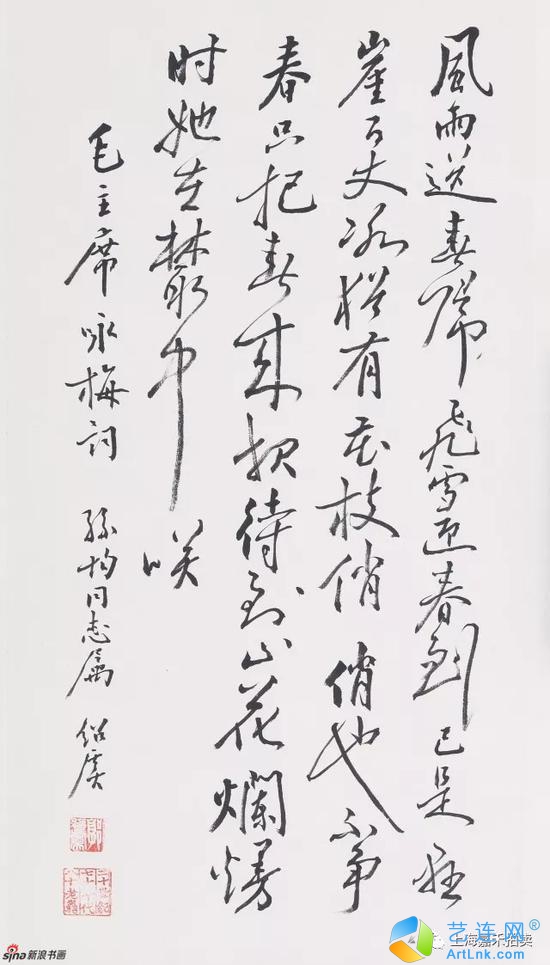 風雨送春歸飛雪迎春到已是懸
崖百丈冰猶有花枝俏俏也不争
春只把春來报待到山花爛熳
时她在叢中咲
毛主席咏梅词 孫均同志属 绍虞
sina新浪书画
上海嘉禾拍卖
艺连网®
ArtLnk.com